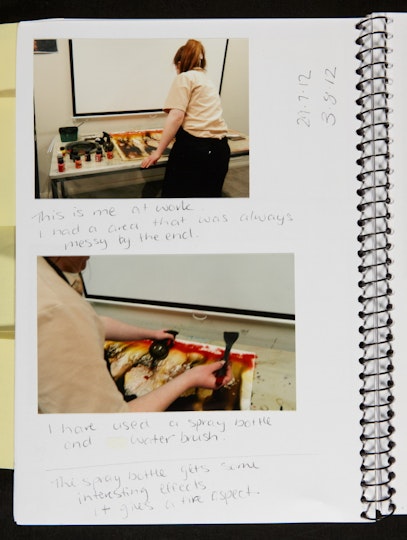 This is me at work.
I had a area that was always
messy by the end.
I have used a spray bottle
and water brush.
The spray bottle gets some
interesting effects
it gives a fire
3 8 12